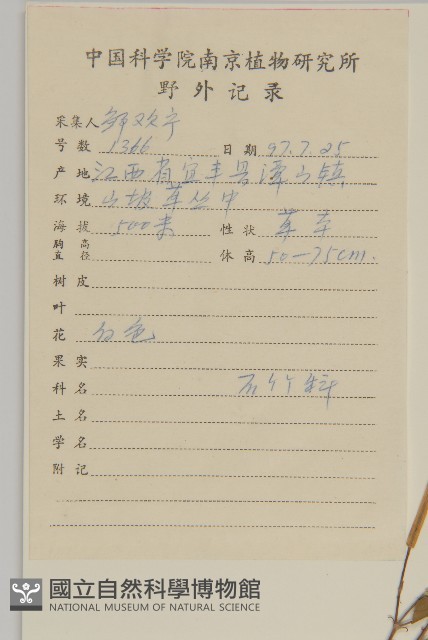 中国科学院南京植物研究所
野外记录
采集人
号数 1366 日期 97.7.25
产地 江西省宜丰县潭山镇
环境 山坡草丛中
海拔 500米 性状 草本
胸高直径 体高 50—75cm.
树皮
叶
花 红色
果实
科名 石竹科
土名
学名
附记
國立自然科學博物館
NATIONAL MUSEUM OF NATURAL SCIENCE